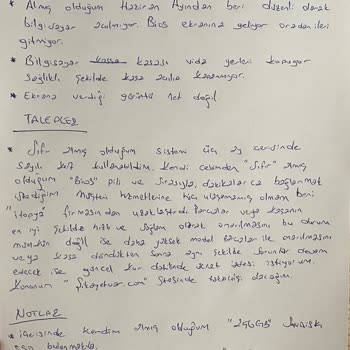 * Almış olduğum Haziran Ayından beri düzenli olarak
bilgisayar açılmıyor. Bios ekranına geliyor oradan ileri
gitmiyor.
* Bilgisayar kasası vida yerleri kopuyor
sağlıklı şekilde kasa açılıp kapanmıyor.
* Ekrana verdiği görüntü net değil.
TALEPLER
* Sıfır almış olduğum sistemi üç ay içerisinde
sayılı kez kullanabildim. Kendi cebimden "Sıfır" almış
olduğum "Bios" pili ve sırasıyla, dakikalarca bağlanmak
istediğim müşteri hizmetlerine hiç ulaşamamış olmam beni
"itopya" firmasından uzaklaştırdı. Parçalar veya kasanın
en iyi şekilde hızlı ve sağlam olarak onarılmasını bu durum
mümkün değil ise daha yüksek model parçalar ile onarılmasını
veya kasa döndükten sonra aynı şekilde sorunlar devam
edecek ise güncel kur dahilinde ücret iadesi istiyorum.
Konunun "Şikayetvar.com" sitesinde takipçisi olacağım.
NOTLAR
* içerisinde kendim almış olduğum "256GB" Sandisk
SSD bulunmakta.